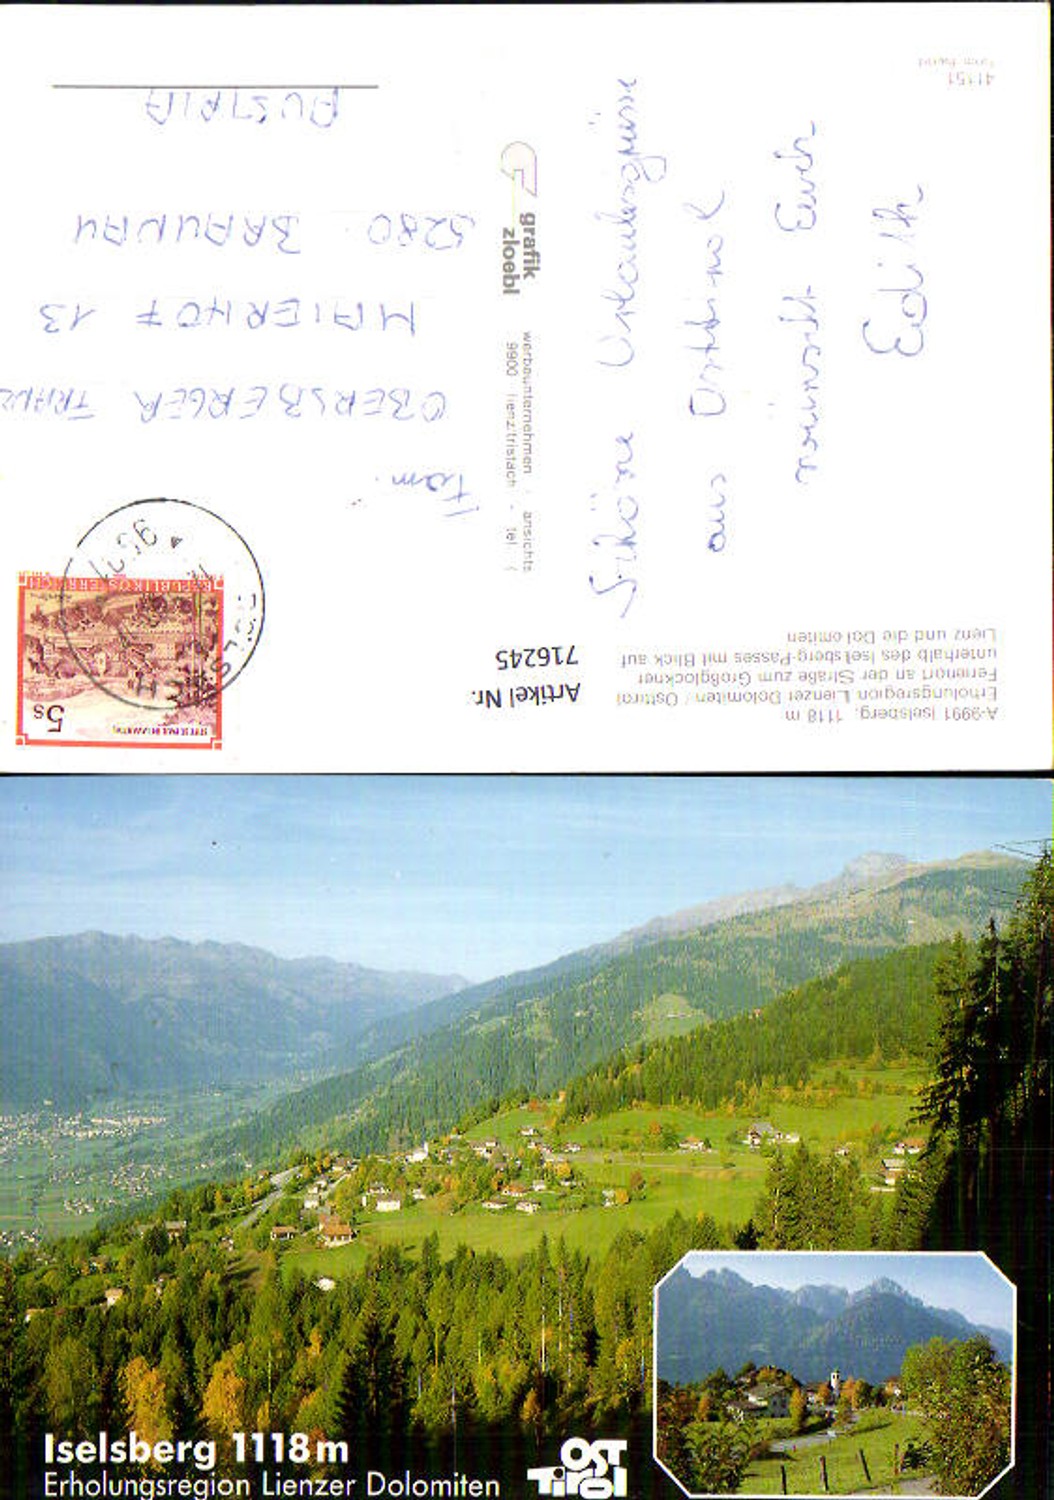 A-9991 Iselsberg, 1118 m
Erholungsregion Lienzer Dolomiten / Osttirol
Ferienort an der Straße zum Großglockner
unterhalb des Iselsberg-Passes mit Blick auf
Lienz und die Dolomiten
Artikel Nr.
716245
Schöne Urlaubsgrüsse
aus Osttirol
wünscht Euch
Edith
41151
grafik
zloebl
werbeunternehmen · ansichts
9900 lienz/tristach - tel. (
5s
REPUBLIK ÖSTERREICH
Fam.
OBERSBERGER FRANZ
MAIERHOF 13
5280 BRAUNAU
AUSTRIA
Iselsberg 1118 m
Erholungsregion Lienzer Dolomiten
OST
TiROl